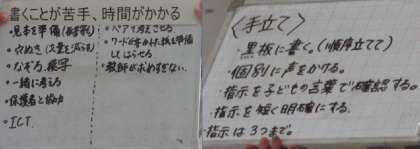 書くことが苦手、時間がかかる
・見本を準備(
・穴ぬき(文量を減らす)
・なぞる、視写
・一緒に考える
・保護者と協力
・ICT
・ペアで考えさせる
・ワードが書かれた板を準備
してはらせる
・教師が求めすぎない。
〈手立て〉
・黒板に書く。(順序立てて)
・個別に声をかける。
・指示を子どもの言葉で確認する。
・指示を短く明確にする。
・指示は3つまで。